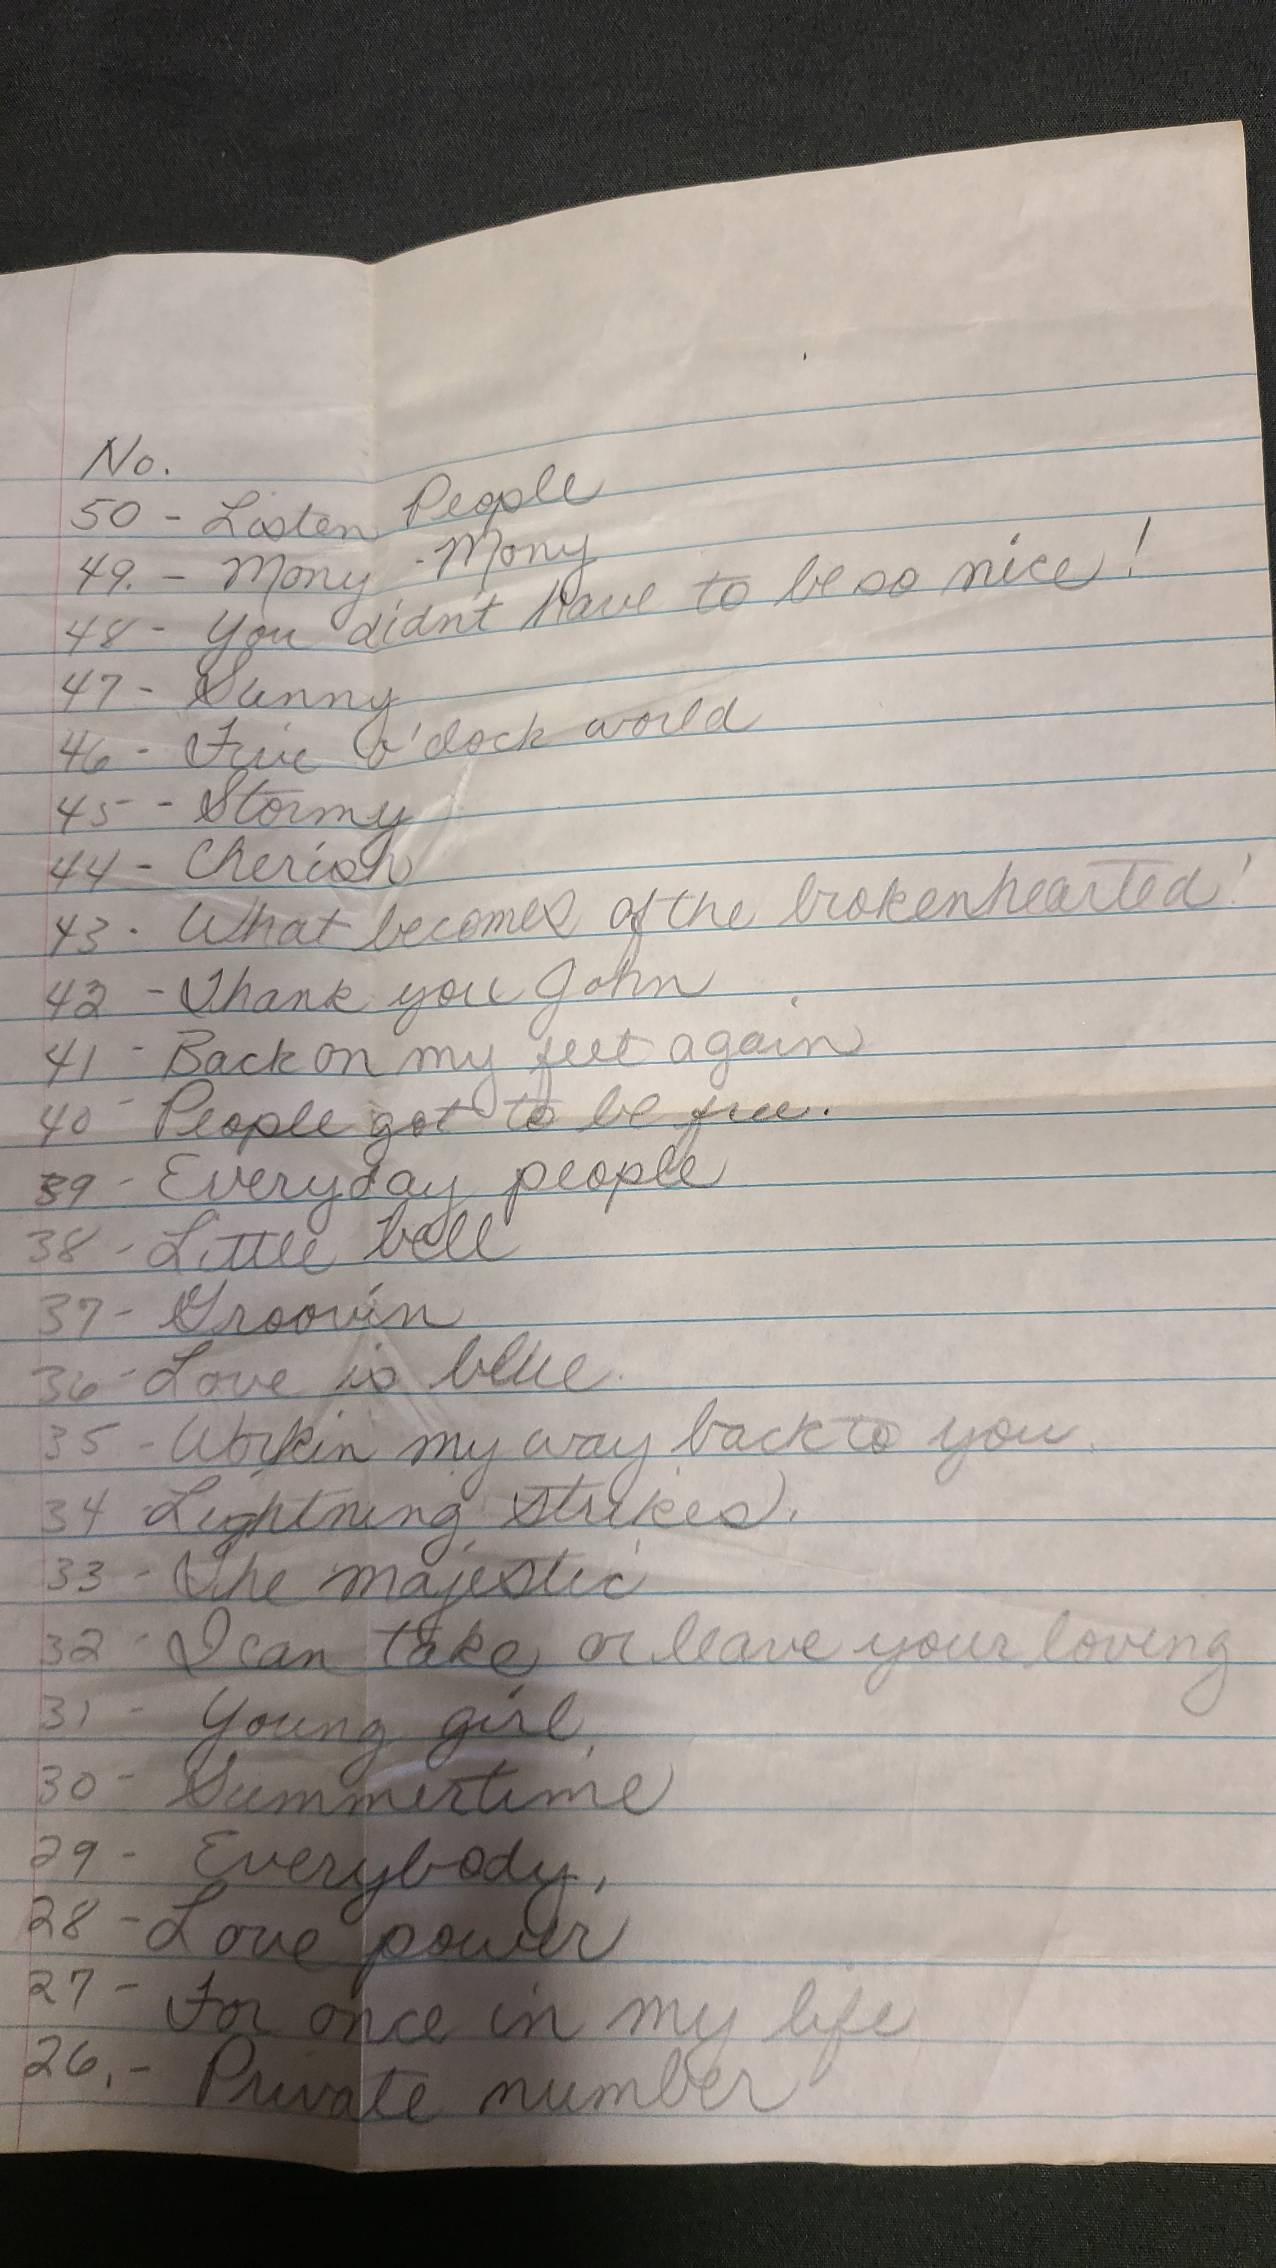 No.
50 - Listen People
49. - Mony - Mony
48 - You didn't have to be so nice!
47 - Sunny
46 - Five o'clock world
45 - Stormy
44 - Cherish
43 - What becomes of the brokenhearted!
42 - Thank you John
41 - Back on my feet again
40 - People got to be free.
39 - Everyday people
38 - Little bell
37 - Groovin
36 - Love is blue.
35 - Workin my way back to you.
34 - Lightning strikes.
33 - The majestic
32 - I can take or leave your loving
31 - Young girl
30 - Summertime
29 - Everybody,
28 - Love power
27 - For once in my life
26. - Private number